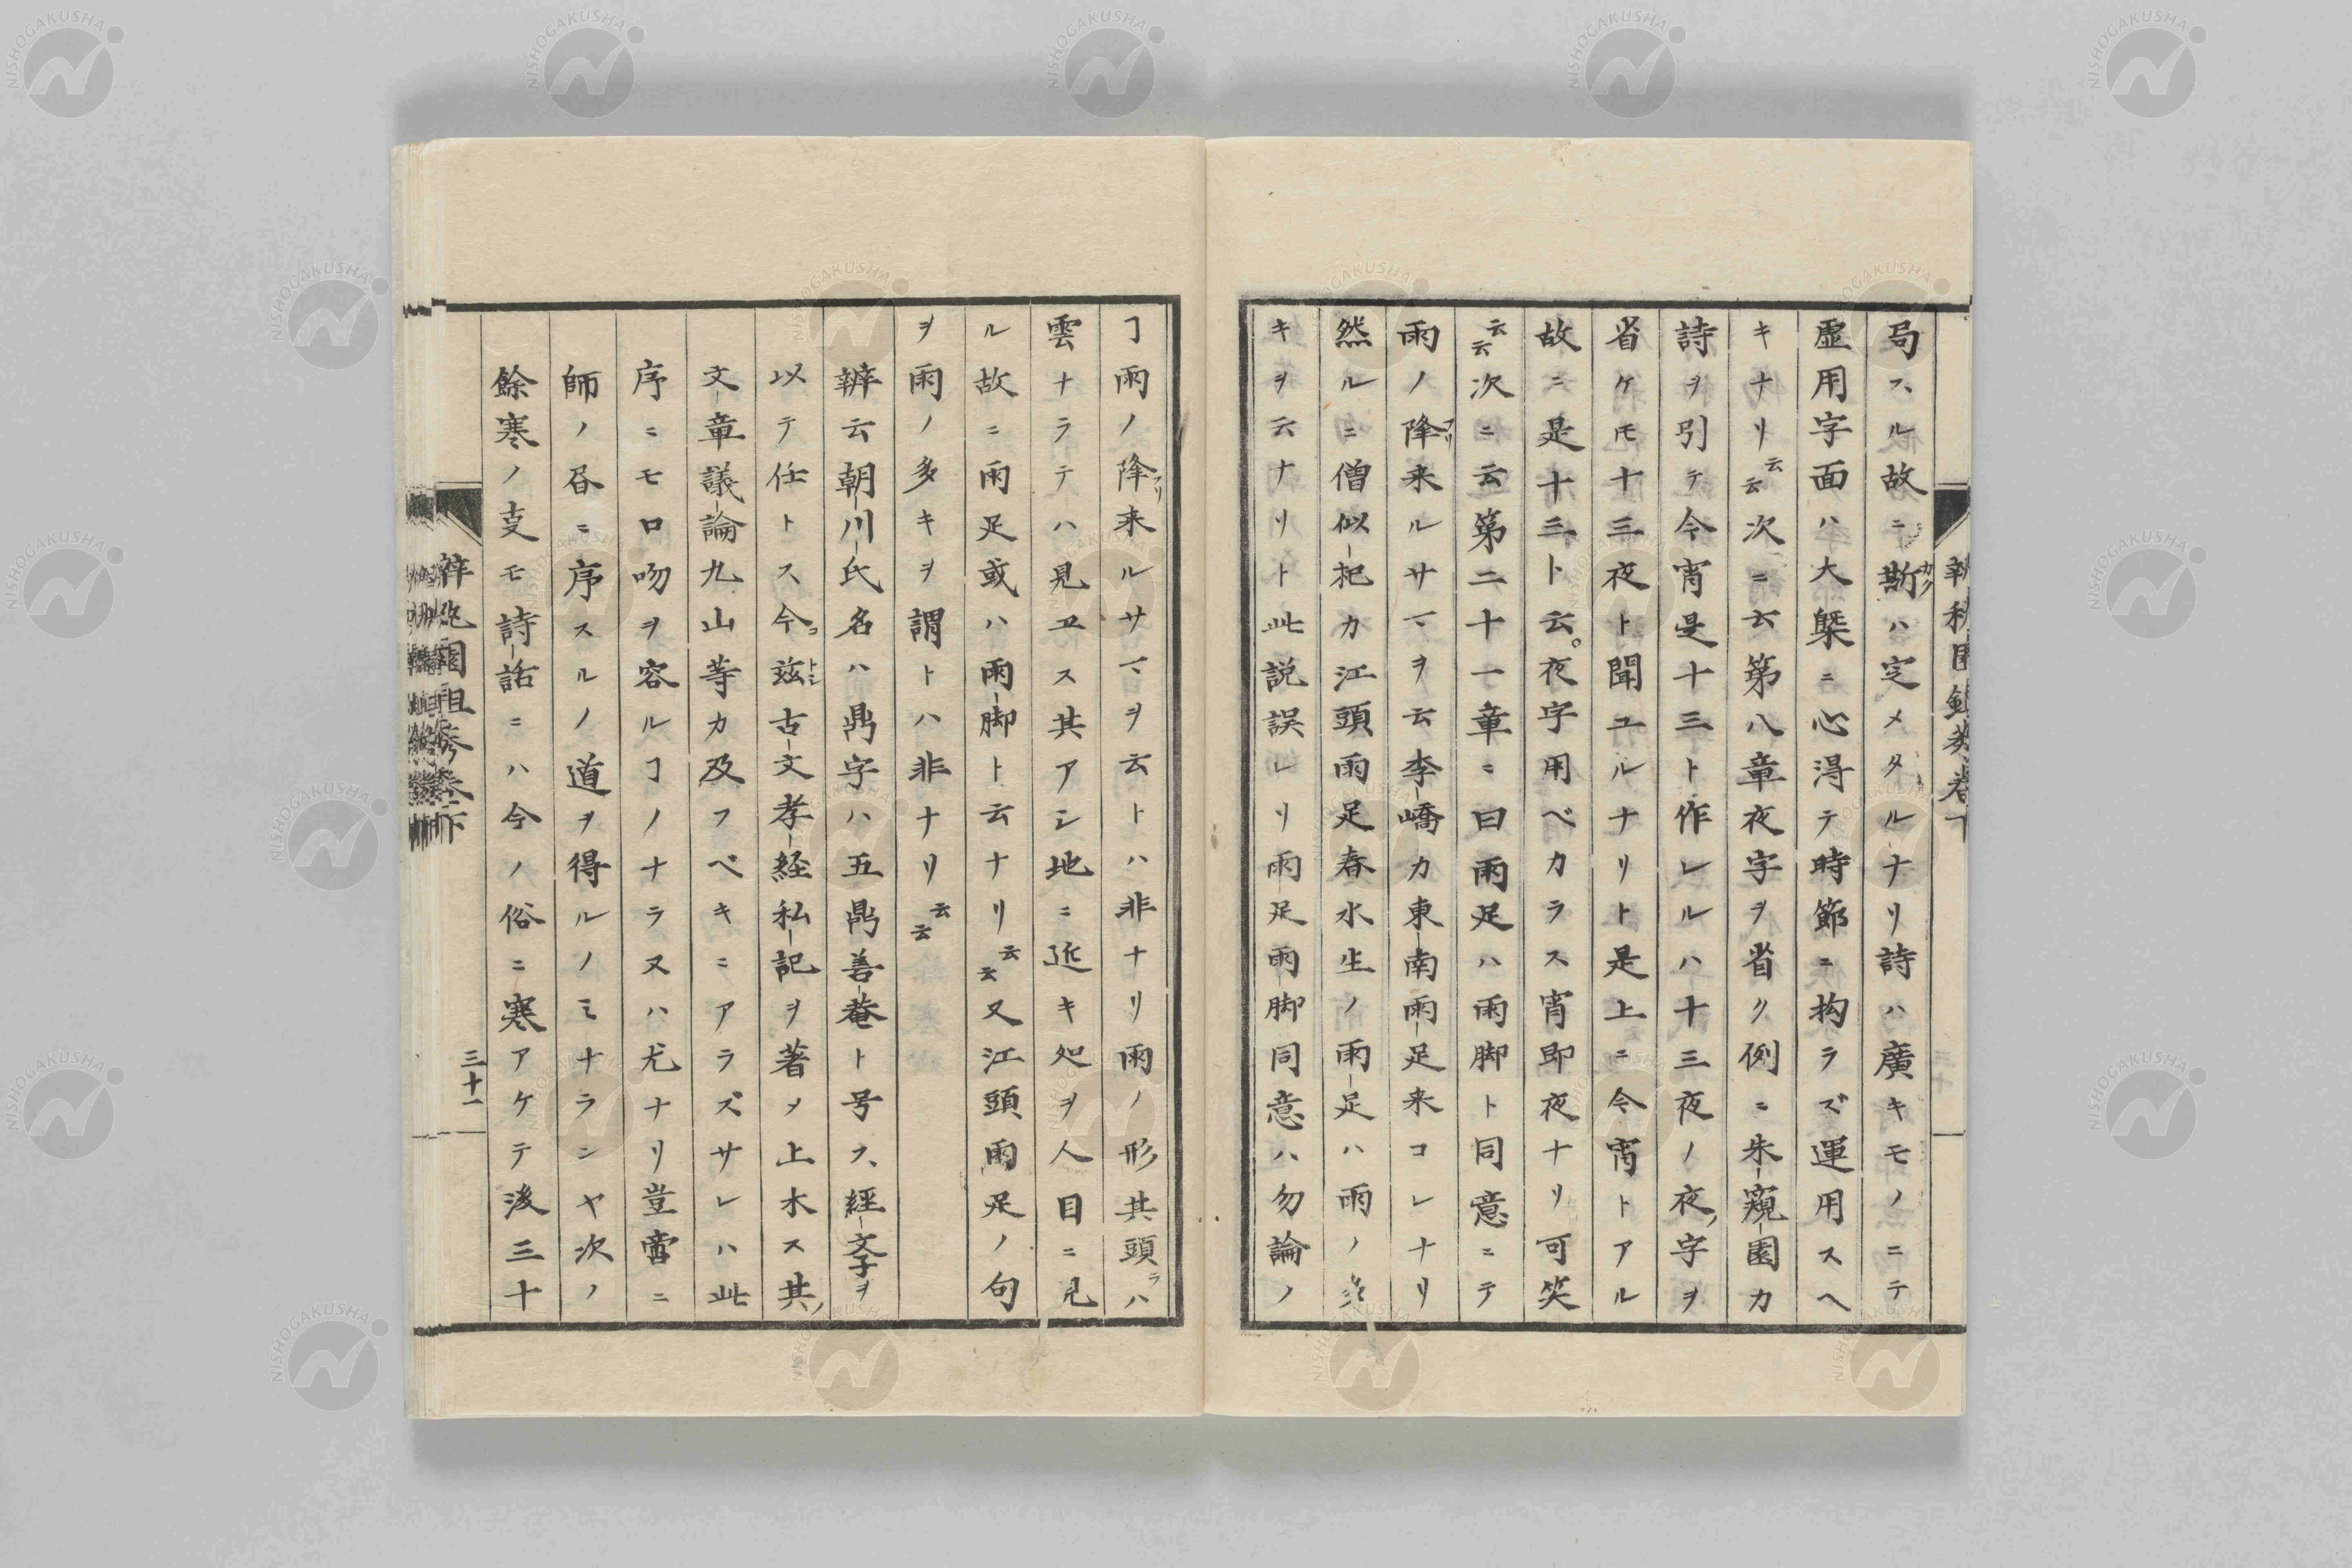 局スル故ニ斯ハ定メタルナリ詩ハ廣キモノニテ
虚用字面ハ大槩ニ心得テ時節ニ拘ラズ運用スヘ
キナリ云云次ニ云第八章夜字ヲ省ク例ニ朱窺園カ
詩ヲ引テ今宵是十三ト作レルハ十三夜ノ夜ノ字ヲ
省ケモ十三夜ト聞ユルナリト是上ニ今宵トアル
故ニ是十三ト云。夜字用ベカラス宵即夜ナリ可笑
云云次ニ云第二十一章ニ曰雨足ハ雨脚ト同意ニテ
雨ノ降来ルサマヲ云李嶠カ東南雨足来コレナリ
然ルニ僧似杞カ江頭雨足春水生ノ雨足ハ雨ノ多
キヲ云ナリト此説誤レリ雨足雨脚同意ハ勿論ノ
ヿ雨ノ降来ルサマヲ云トハ非ナリ雨ノ形其頭ラハ
雲ナラテハ見ヱス其アシ地ニ近キ処ヲ人目ニ見
ル故ニ雨足或ハ雨脚ト云ナリ云云又江頭雨足ノ句
ヲ雨ノ多キヲ謂トハ非ナリ云云
辨云朝川氏名ハ鼎字ハ五鼎善菴ト号ス經文字ヲ
以テ任トス今茲古文孝経私記ヲ著メ上木ス其ノ
文章議論九山等カ及フベキニアラズサレハ此
序ニモ口吻ヲ容ルヿノナラヌハ尤ナリ豈啻ニ
師ノ昏ニ序スルノ道ヲ得ルノミナランヤ次ノ
餘寒ノ支モ詩話ニハ今ノ俗ニ寒アケテ後三十
三十一